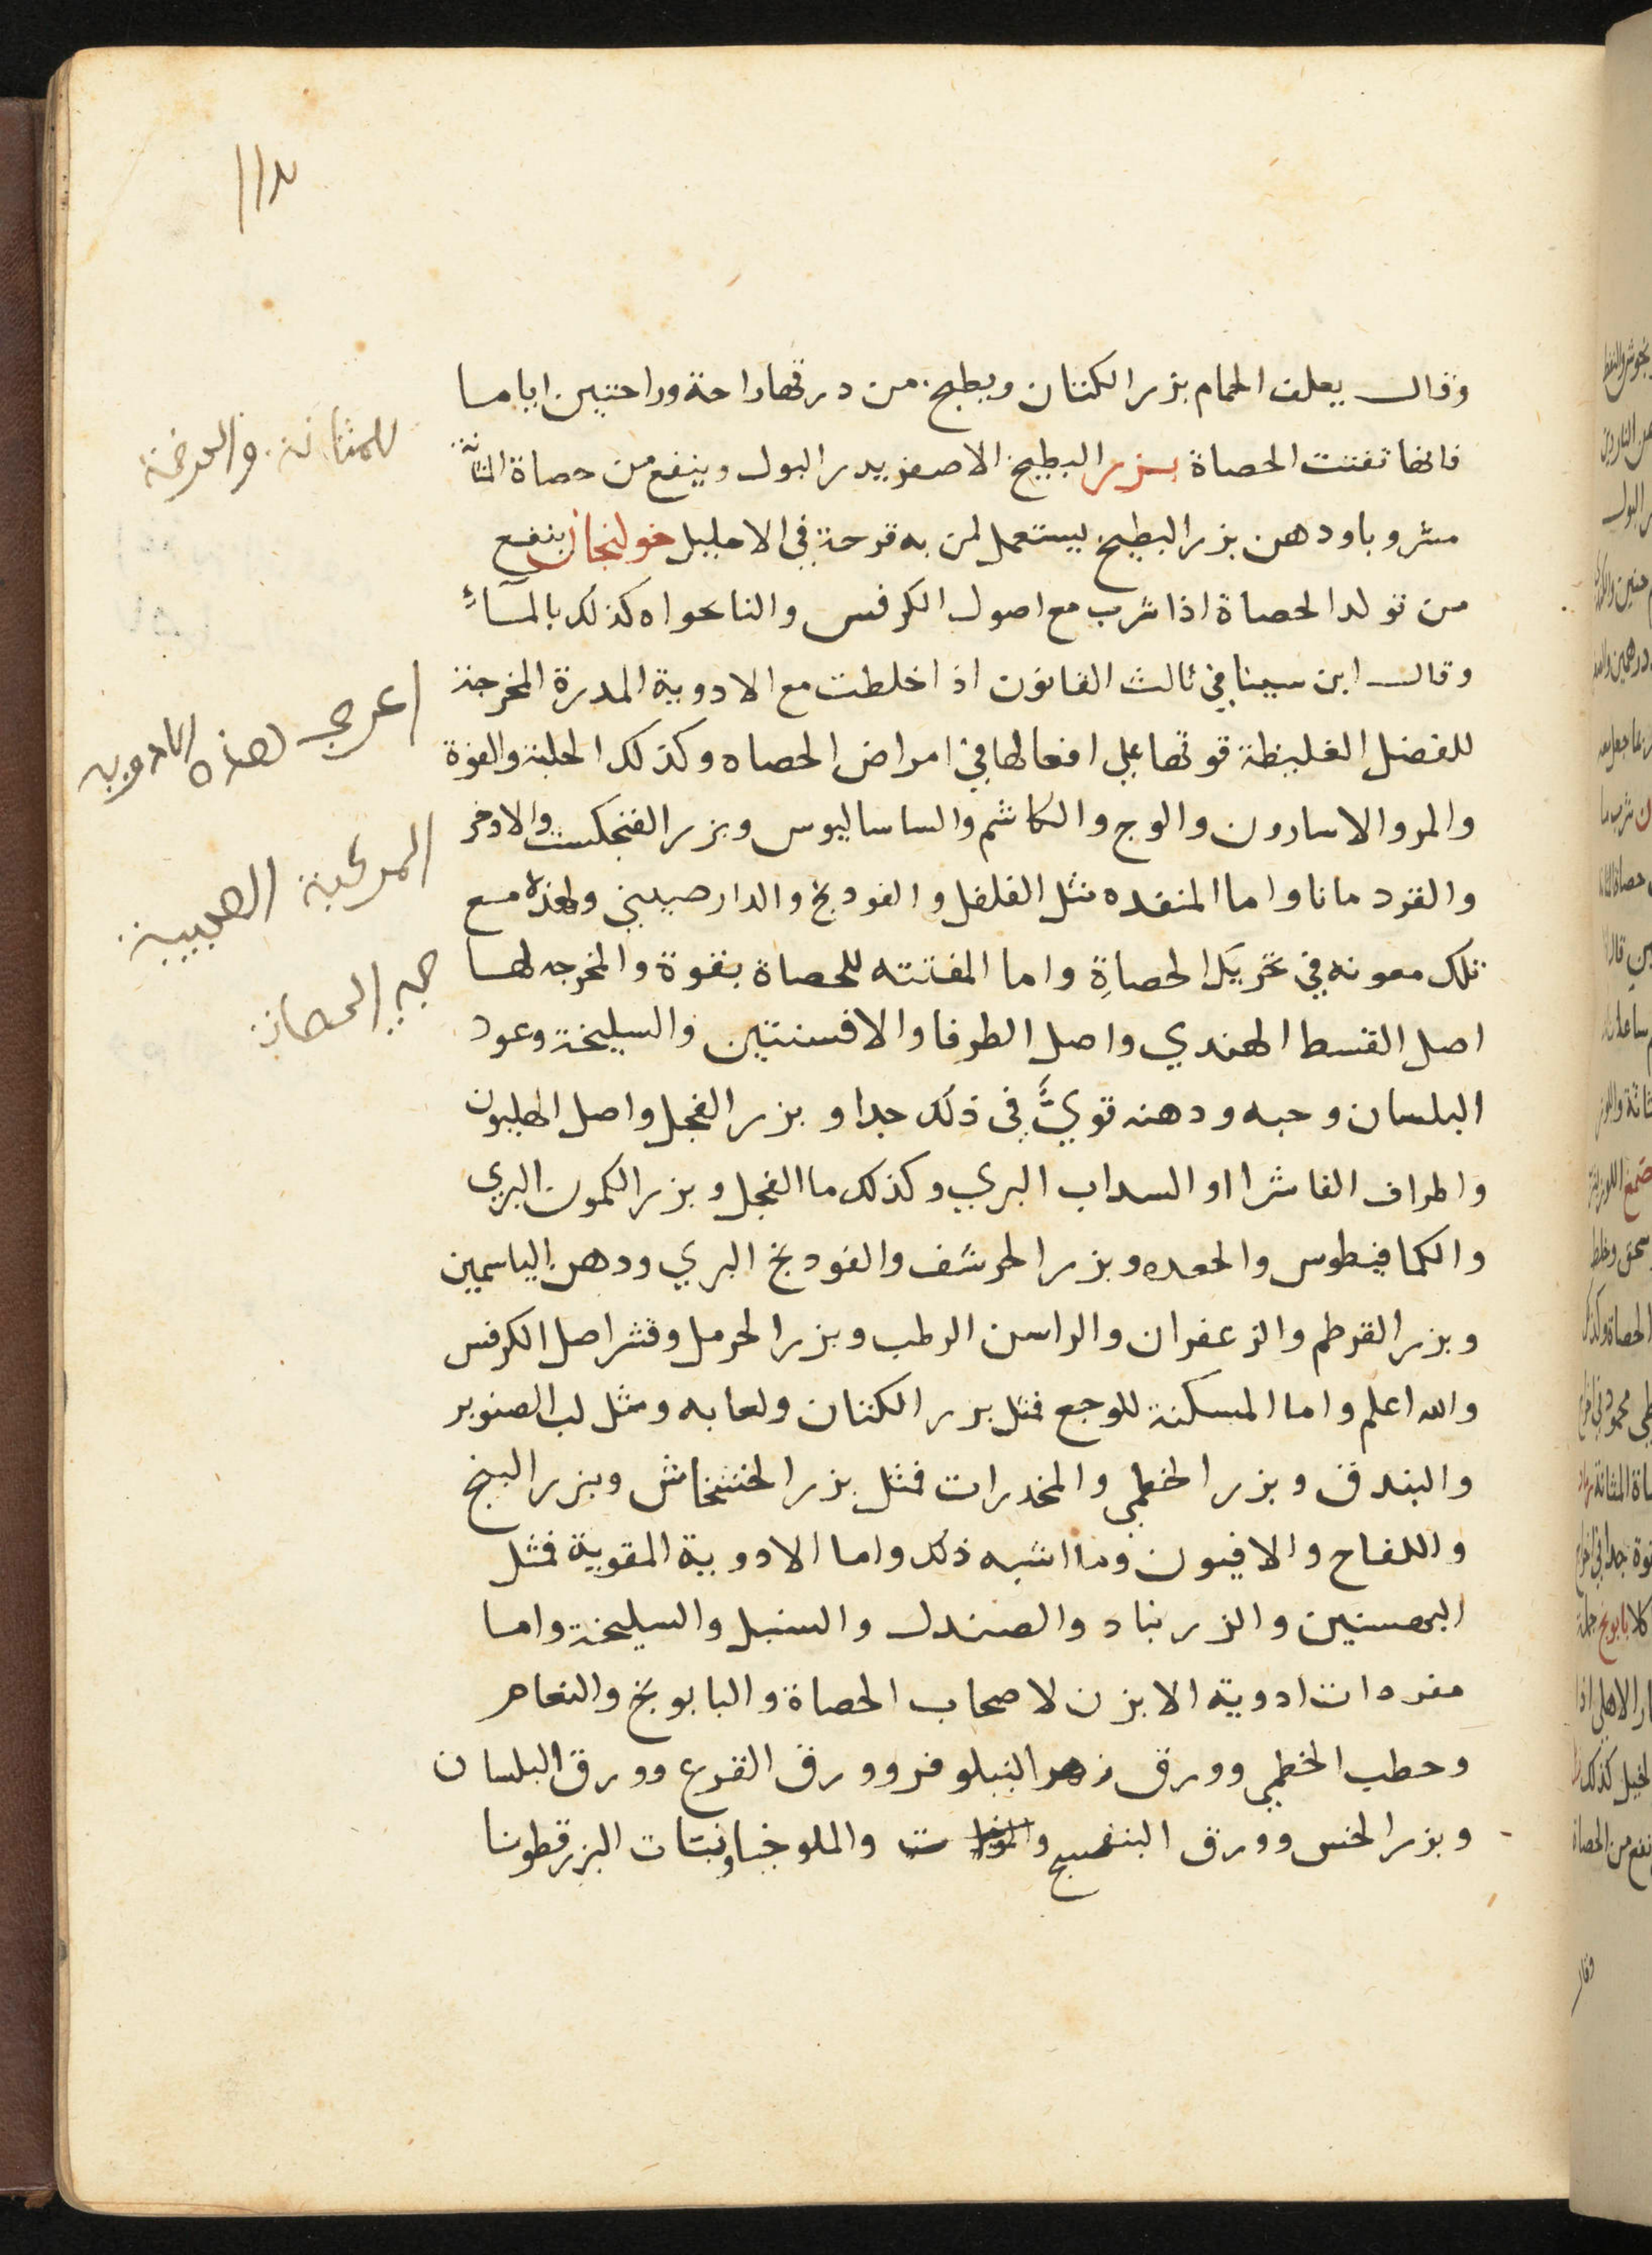 وقال يعلف الحمام بزر الكتان ويطبخ من درقها راحة وراحتين اياما
فانها تفتت الحصاة بزر البطيخ الاصفر يدر البول وينفع من حصاة المثانة
مشروبا ودهن بزر البطيخ يستعمل لمن به قرحة في الاحليل خولنجان ينفع
من تولد الحصاة اذا شرب مع اصول الكرفس والنانحواه كذلك بالمآء
وقال ابن سينا في ثالث القانون اذا خلطت مع الادوية المدرة المخرجة
للفضل الغليظة قوتها علي افعالها في امراض الحصاه وكذلك الحلبة والفوة
والمر والاسارون والوج والكاشم والساساليوس وبزر الفنجكست والادخر
والقردمانا واما المنفده مثل الفلفل والفودنج والدارصيني ولهذه مع
تلك معونه في تحريك الحصاةِ واما المفتته للحصاة بقوة والمخرجه لها
اصل القسط الهندي واصل الطرفا والافسنتين والسليخة وعود
البلسان وحبه ودهنه قويٌّ في ذلك جدا وبزر الفجل واصل الهليون
واطراف الفاشرا او السداب البري وكذلك ما الفجل وبزر الكمون البري
والكمافيطوس والجعده وبزر الحرشف والفودنج البري ودهن الياسمين
وبزر القرطم والزعفران والراسن الرطب وبزر الحرمل وقشر اصل الكرفس
والله اعلم واما المسكنة للوجع فمثل بزر الكتان ولعابه ومثل لب الصنوبر
والبندق وبزر الخطمي والمخدرات فمثل بزر الخشخاش وبزر البنج
واللفاح والافيون وما اشبه ذلك واما الادوية المقوية فمثل
البهمنين والزرنباد والصندل والسنبل والسليخة واما
مفردات ادوية الابزن لاصحاب الحصاة والبابونج والنعام
وحطب الخطمي وورق زهر النيلوفر وورق القرع وورق البلسان
وبزر الخس وورق البنفسج والملوخيا ونبتات البزرقطونا
للمثانة
اعرج لهذه الادويه
المركبة
الحصاة